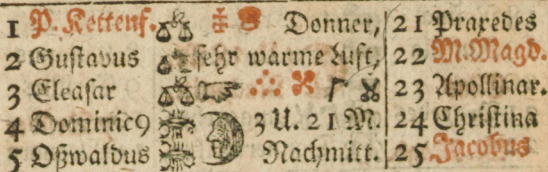 1 P. Kettenf. Donner, 21 Praxedes
2 Gustavus sehr warme Luft, 22 M. Magd.
3 Eleasar 23 Apollinar.
4 Dominic9 3 U. 21 M. 24 Christina
5 Oßwaldus Nachmitt. 25 Jacobus